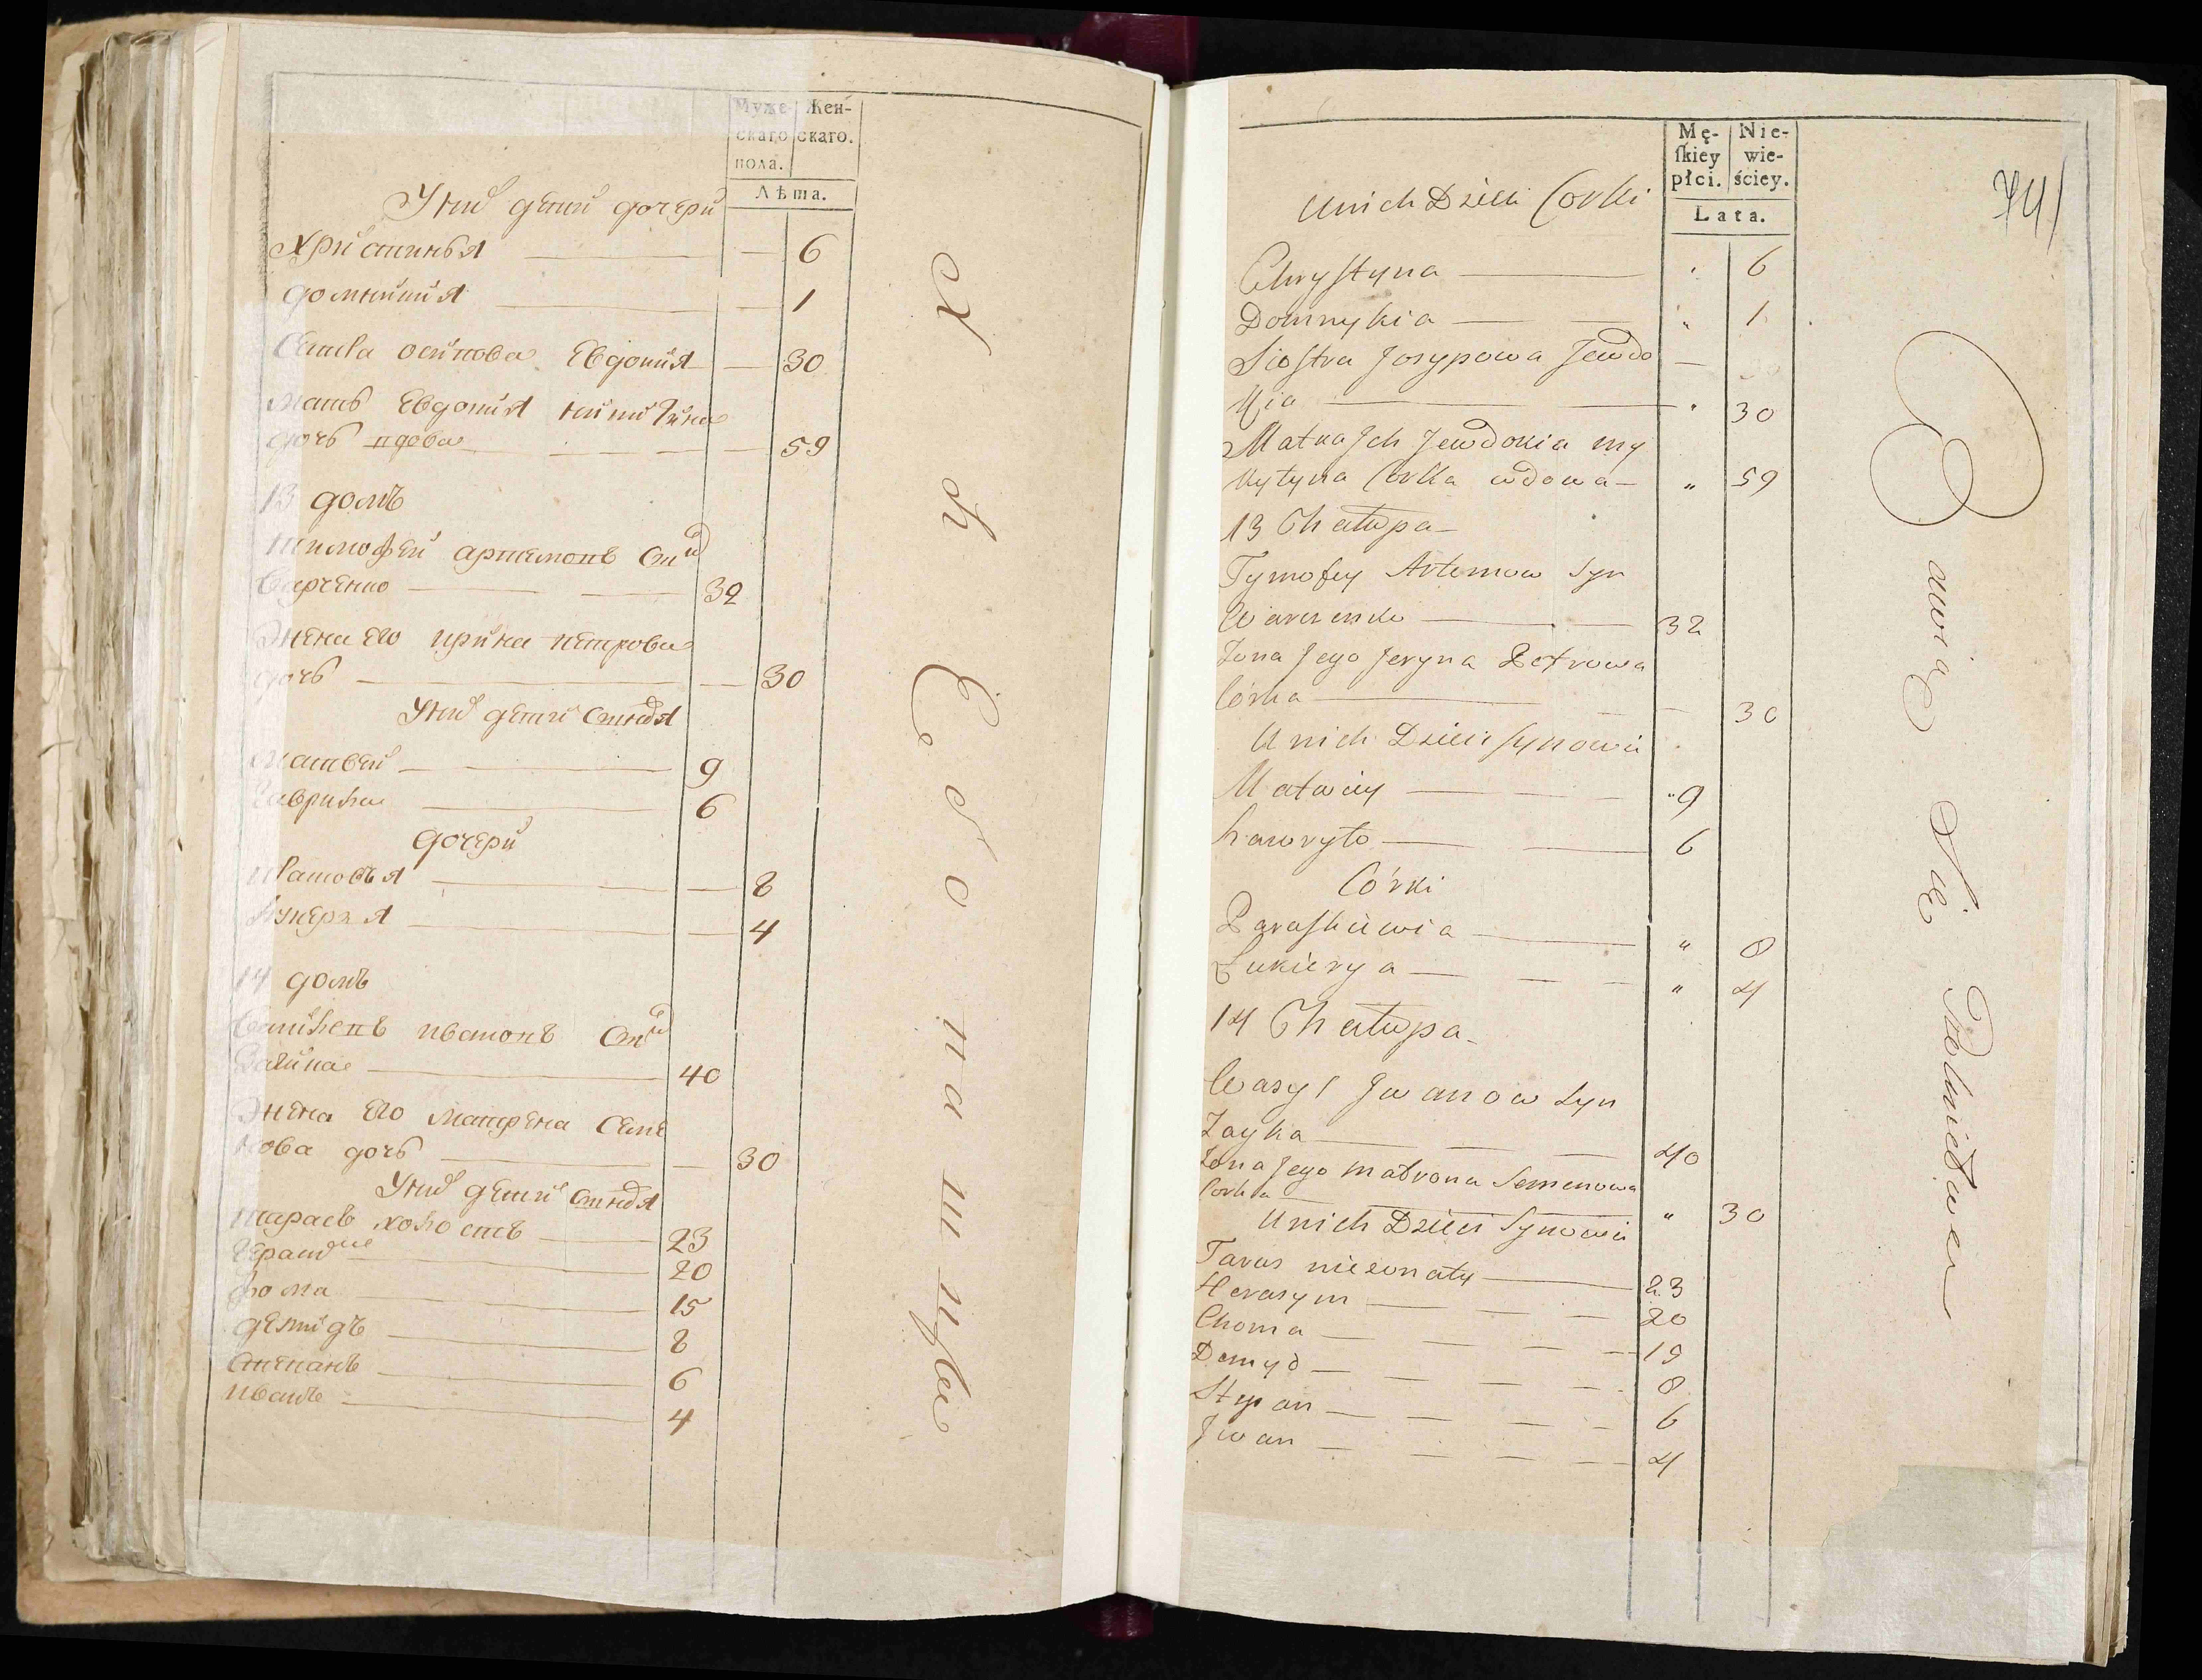 Муже- Жен-
скаго скаго.
пола.
Лѣта.
У них детей дочери
Христинья — 6
домникия — 1
Сестра осипова Евдокия — 30
мать Евдокия никитина
дочь вдова — 59
13 домъ
тимофей артемовъ Син
Варченко — 32
Жена его ирина петрова
дочь — 30
У них детей Синовя
матвей — 9
гаврила — 6
дочери
8
лукеря — 4
14 домъ
ивановъ Син
Заика — 40
Жена его матрена Семе
нова дочь — 30
У них детей Синовя
тарасъ холостъ — 23
герасим — 20
фома — 15
демидъ — 8
степанъ — 6
иванъ — 4
Mę- Nie-
skiey wie-
płci. ściey.
Lata.
U nich Dzieci Corki
Chrystyna — " 6
Domnykia — " 1
Siostra Josypowa Jewdo
kia — " 30
Matka Jch Jewdokia my
kytyna Corka wdowa — " 59
13 Chałupa
Tymofey Artemow Syn
Warczenko — 32
Żona Jego Jeryna Petrowa
Córka — 30
U nich Dzieci Synowie
Matwiey — " 9
hawryło — 6
Córki
Paraskiewia — " 8
Łukierya — " 4
14 Chałupa
Wasyl Jwanow Syn
Zayka — 40
Żona Jego matrona Semenowa
Corka — " 30
U nich Dzieci Synowie
Taras nieżonaty — 23
Herasym — 20
Choma — 15
Demyd — 8
Stepan — 6
Jwan — 4